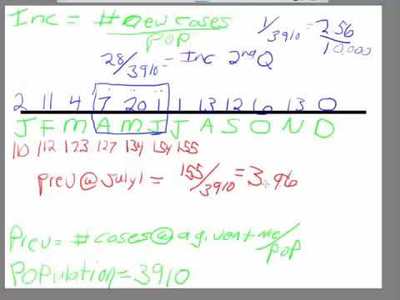 Inc = # new cases
POP
1/3910 = 2.56
10,000
28/3910 = Inc 2nd Q
2 11 4 7 20 1 1 13 12 6 13 0
J F M A M J J A S O N D
110 112 123 127 134 154 155
Prev @ July 1 = 155/3910 = 3.96
Prev = # cases @ a given time/POP
Population = 3910